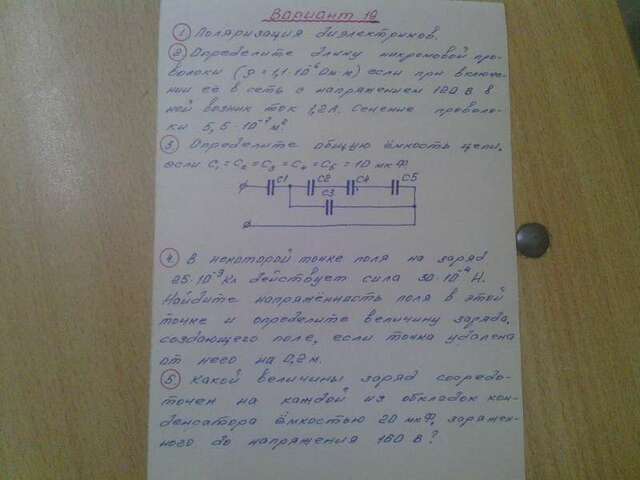 Вариант 19
1 Поляризация диэлектриков.
2 Определите длину никромовой про-
волоки (ρ=1,1·10⁻⁶Ом·м) если при включе-
нии её в сеть с напряжением 120 В в
ней возник ток 1,2А. Сечение проволо-
ки 5,5·10⁻⁷м².
3 Определите общую ёмкость цепи,
если C₁=C₂=C₃=C₄=C₅=10 мкФ
C1 C2 C4 C5
C3
4 В некоторой точке поля на заряд
25·10⁻⁹Кл действует сила 30·10⁻⁴ Н.
Найдите напряжённость поля в этой
точке и определите величину заряда,
создающего поле, если точка удалена
от него на 0,2 м.
5 Какой величины заряд сосредо-
точен на каждой из обкладок кон-
денсатора ёмкостью 20 мкФ, заряжен-
ного до напряжения 160 В?